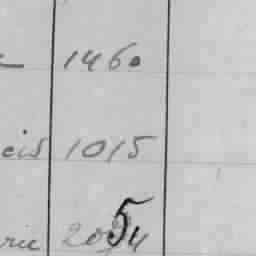 1460
cis 1015
rie 2054